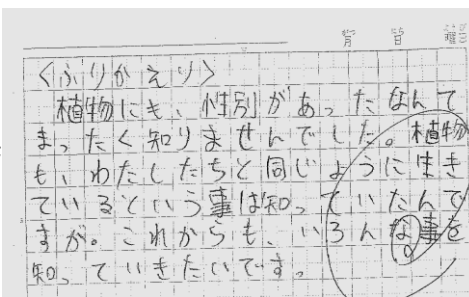 <ふりかえり>
植物にも、性別があったなんて
まったく知りませんでした。植物
も、わたしたちと同じように生き
ているという事は知っていたんで
すが。これからも、いろんな事を
知っていきたいです。